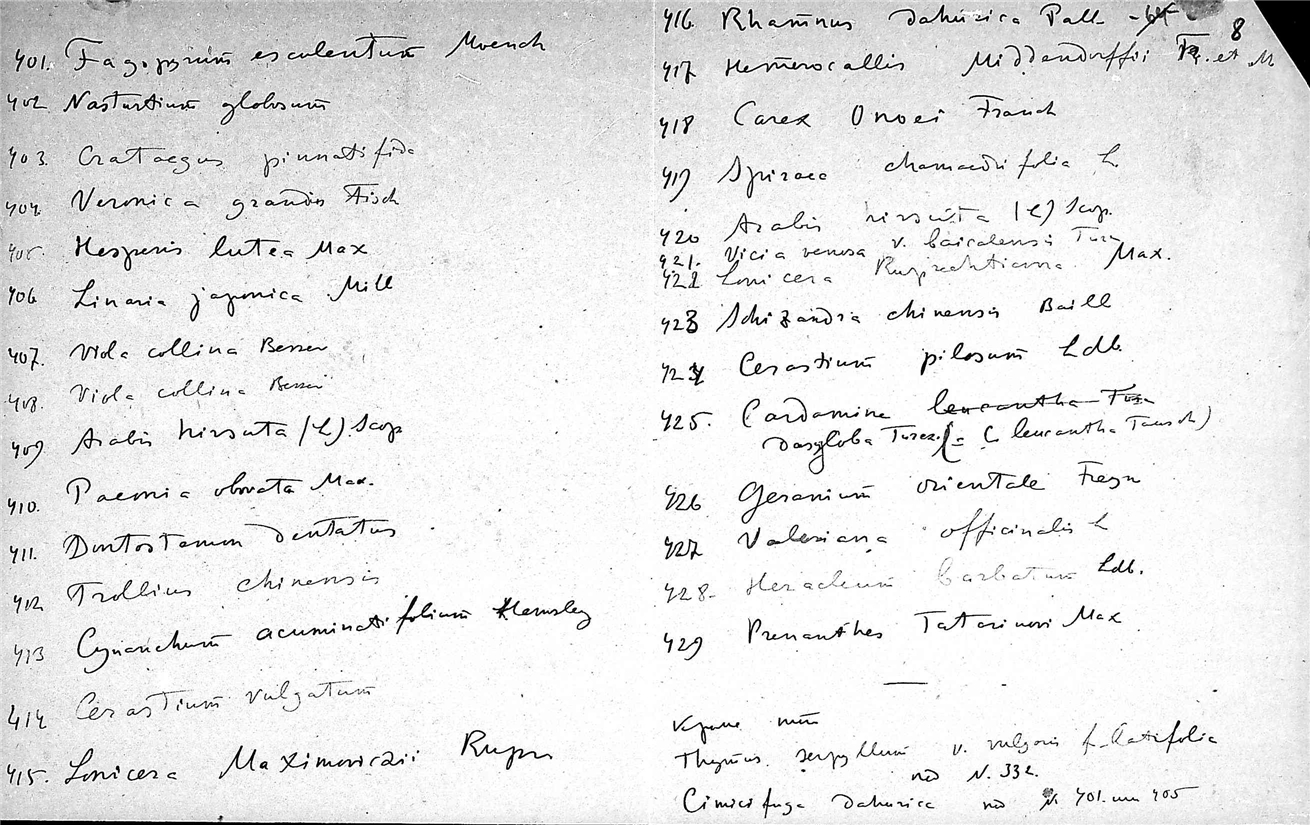 401. Fagopyrum esculentum Moench
402 Nasturtium globosum
403. Crataegus pinnatifida
404. Veronica grandis Fisch
405. Hesperis lutea Max
406 Linaria japonica Mill
407. Viola collina Besser
408. Viola collina Besser
409 Arabis hirsuta (L) Scop
410. Paeonia obovata Max.
411. Dontostemon dentatus
412 Trollius chinensis
413 Cynanchum acuminatifolium Hemsley
414 Cerastium vulgatum
415. Lonicera Maximoviczii Rupr
8
416. Rhamnus dahurica Pall
417 Hemerocallis Middendorffii Tr. et M
418 Carex Onoei Franch
419 Spiraea chamaedrifolia L.
420 Arabis hirsuta (L) Scop.
421. Vicia venosa v. baicalensis Turcz
422 Lonicera Ruprechtiana Max.
423 Schizandra chinensis Baill
424 Cerastium pilosum Ldb.
425. Cardamine leucantha
dasyloba Turcz. (= C. leucantha Tausch)
426 Geranium orientale Freyn
427 Valeriana officinalis L
428- Heracleum barbatum Ldb.
429 Prenanthes Tatarinovi Max
Кроме
Thymus serpyllum v. vulgaris f. latifolia
N. 332.
Cimicifuga dahurica N. 401. или 405